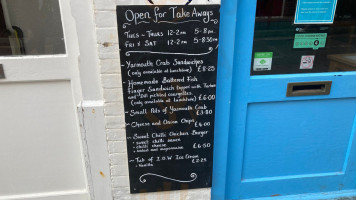 Open for Take Aways
Tues - Thurs 12-2pm 5-8pm
Fri & Sat 12-2pm 5-8:30pm
- Yarmouth Crab Sandwiches
(only available at lunchtime) £8.25
- Homemade Battered Fish
Finger Sandwich topped with Tartare
and Dill pickled courgettes
(only available at lunchtime) £6.00
- Small Pots of Yarmouth Crab
£3.80
- Cheese and Onion Chips
£4.00
- Sweet Chilli Chicken Burger
• sweet chilli sauce
• chilli cheese
• salad and mayonnaise £6.50
- Tub of I.O.W Ice Cream
- Vanilla £2.25